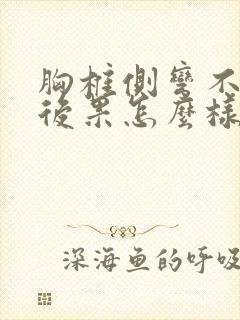 胸椎側彎不
後果怎麼樣
深海鱼的呼吸